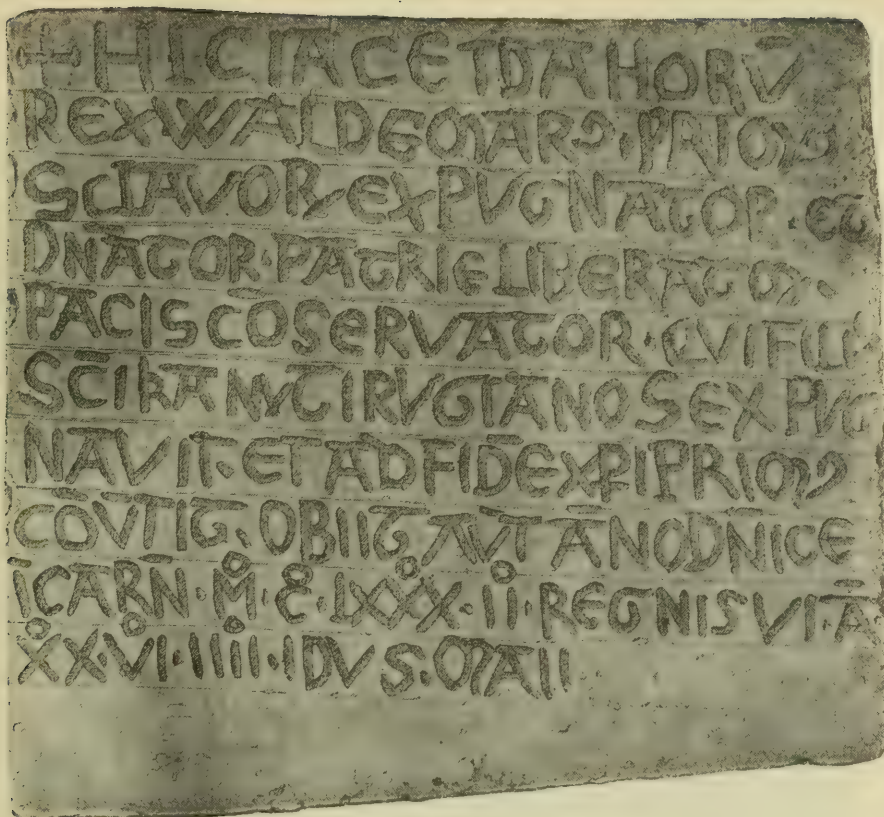 + HIC IACET DAHORV̄
REX WALDEMARꝰ · PRIMꝰ
SCLAVOR EXPVGNATOR · ET
DN̄ATOR · PATRIE LIBERATOR ·
PACIS CŌSERVATOR · QVI FILIꝰ
SC̄I KANVTI RVGIANOS EXPVG
NAVIT · ET AD FIDĒ XP̄I PRIMꝰ
CŌVTIT · OBIIT AVT ĀNO DN̄ICE
ĪCARN · M̊ · C̊ · LXXX̊ · II̊ · REGNI SVI · Ā
X̊X · V̊I · IIII̊ · IDVS · MAII